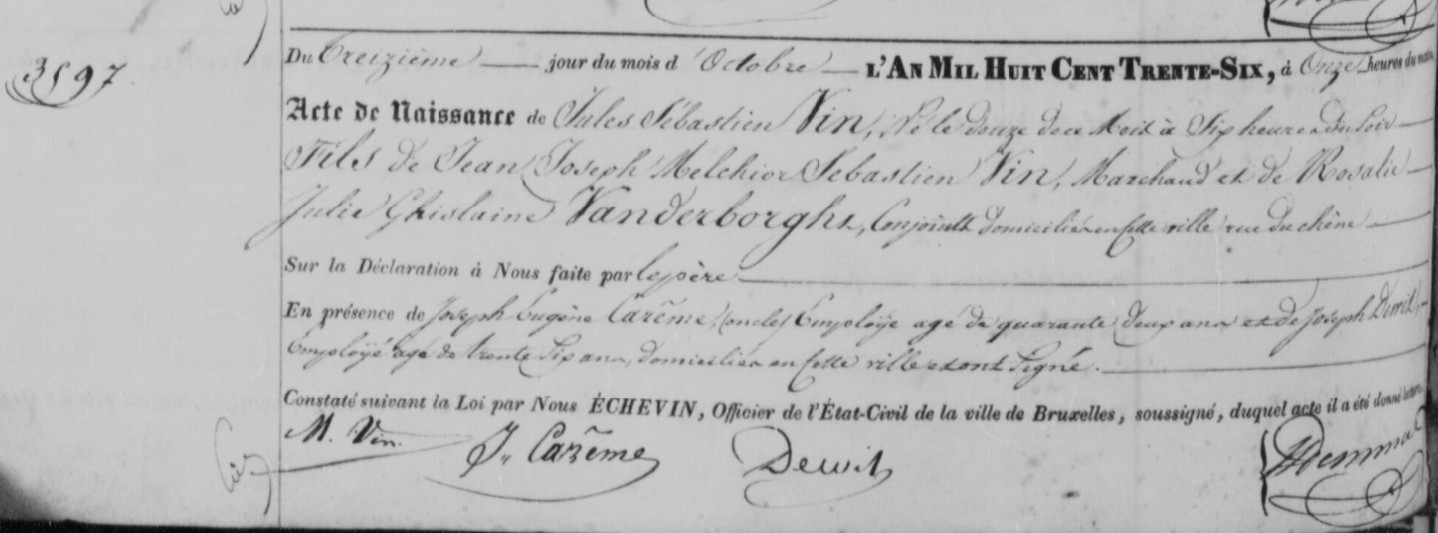 3597
Du treizième jour du mois d'Octobre L'AN MIL HUIT CENT TRENTE-SIX, à Onze heures du matin,
Acte de Naissance de Jules Sébastien Vin, Né le douze de ce Mois à Six heures du Soir
Fils de Jean Joseph Melchior Sebastien Vin, Marchand et de Rosalie
Julie Ghislaine Vanderborght, Conjoints domiciliés en cette ville rue du chêne
Sur la Déclaration à Nous faite par le père
En présence de Joseph Eugène Carême, (oncle) Employé agé de quarante deux ans et de Joseph Dewit,
Employé agé de trente Six ans, domiciliés en cette ville et ont Signé.
Constaté suivant la Loi par Nous ÉCHEVIN, Officier de l'État-Civil de la ville de Bruxelles, soussigné, duquel acte il a été donné lecture.
M. Vin. J. Carême Dewit